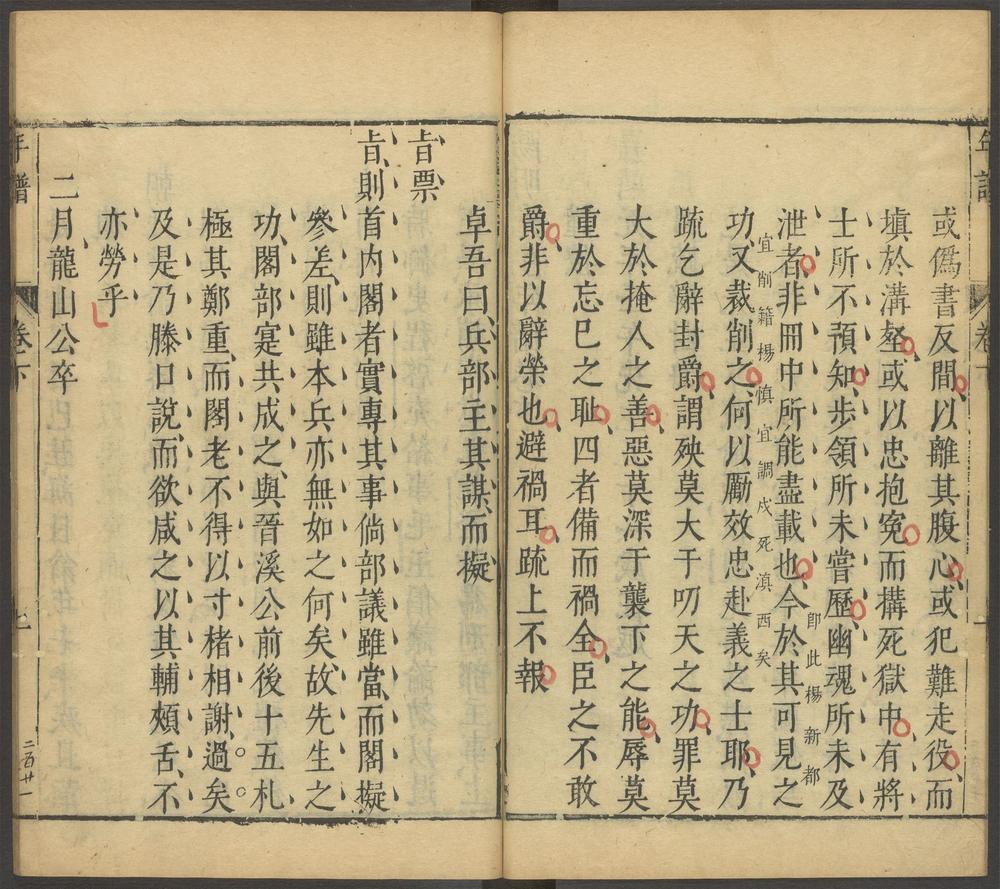 或僞書反間以離其腹心、或犯難走役而
填於溝壑、或以忠抱寃而搆死獄中、有將
士所不預知、步領所未嘗歷、幽魂所未及
泄者、非冊中所能盡載也、今於其可見之
卽此楊新都
宜削籍楊慎宜調戍死滇西矣
功、又裁削之、何以勵效忠赴義之士耶、乃
疏乞辭封爵、謂殃莫大于叨天之功、罪莫
大於掩人之善、惡莫深于襲下之能、辱莫
重於忘已之耻、四者備而禍全、臣之不敢
爵、非以辭榮也、避禍耳、疏上不報
年譜 卷下
卓吾曰、兵部主其謀、而擬
旨票
旨、則首內閣者實專其事、倘部議雖當、而閣擬
參差、則雖本兵亦無如之何矣、故先生之
功、閣部寔共成之、與晉溪公前後十五札
極其鄭重、而閣老不得以寸楮相謝、過矣
及是乃滕口說、而欲咸之以其輔頰舌、不
亦勞乎
二月、龍山公卒
年譜 卷下 二百廿一